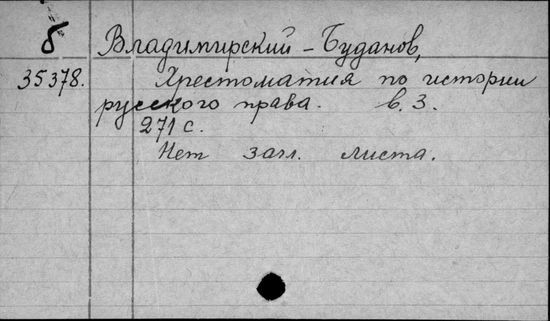 б Владимирский-Буданов,
35378. Хрестоматия по истории
русского права. в. 3.
271 с.
Нет загл. листа.